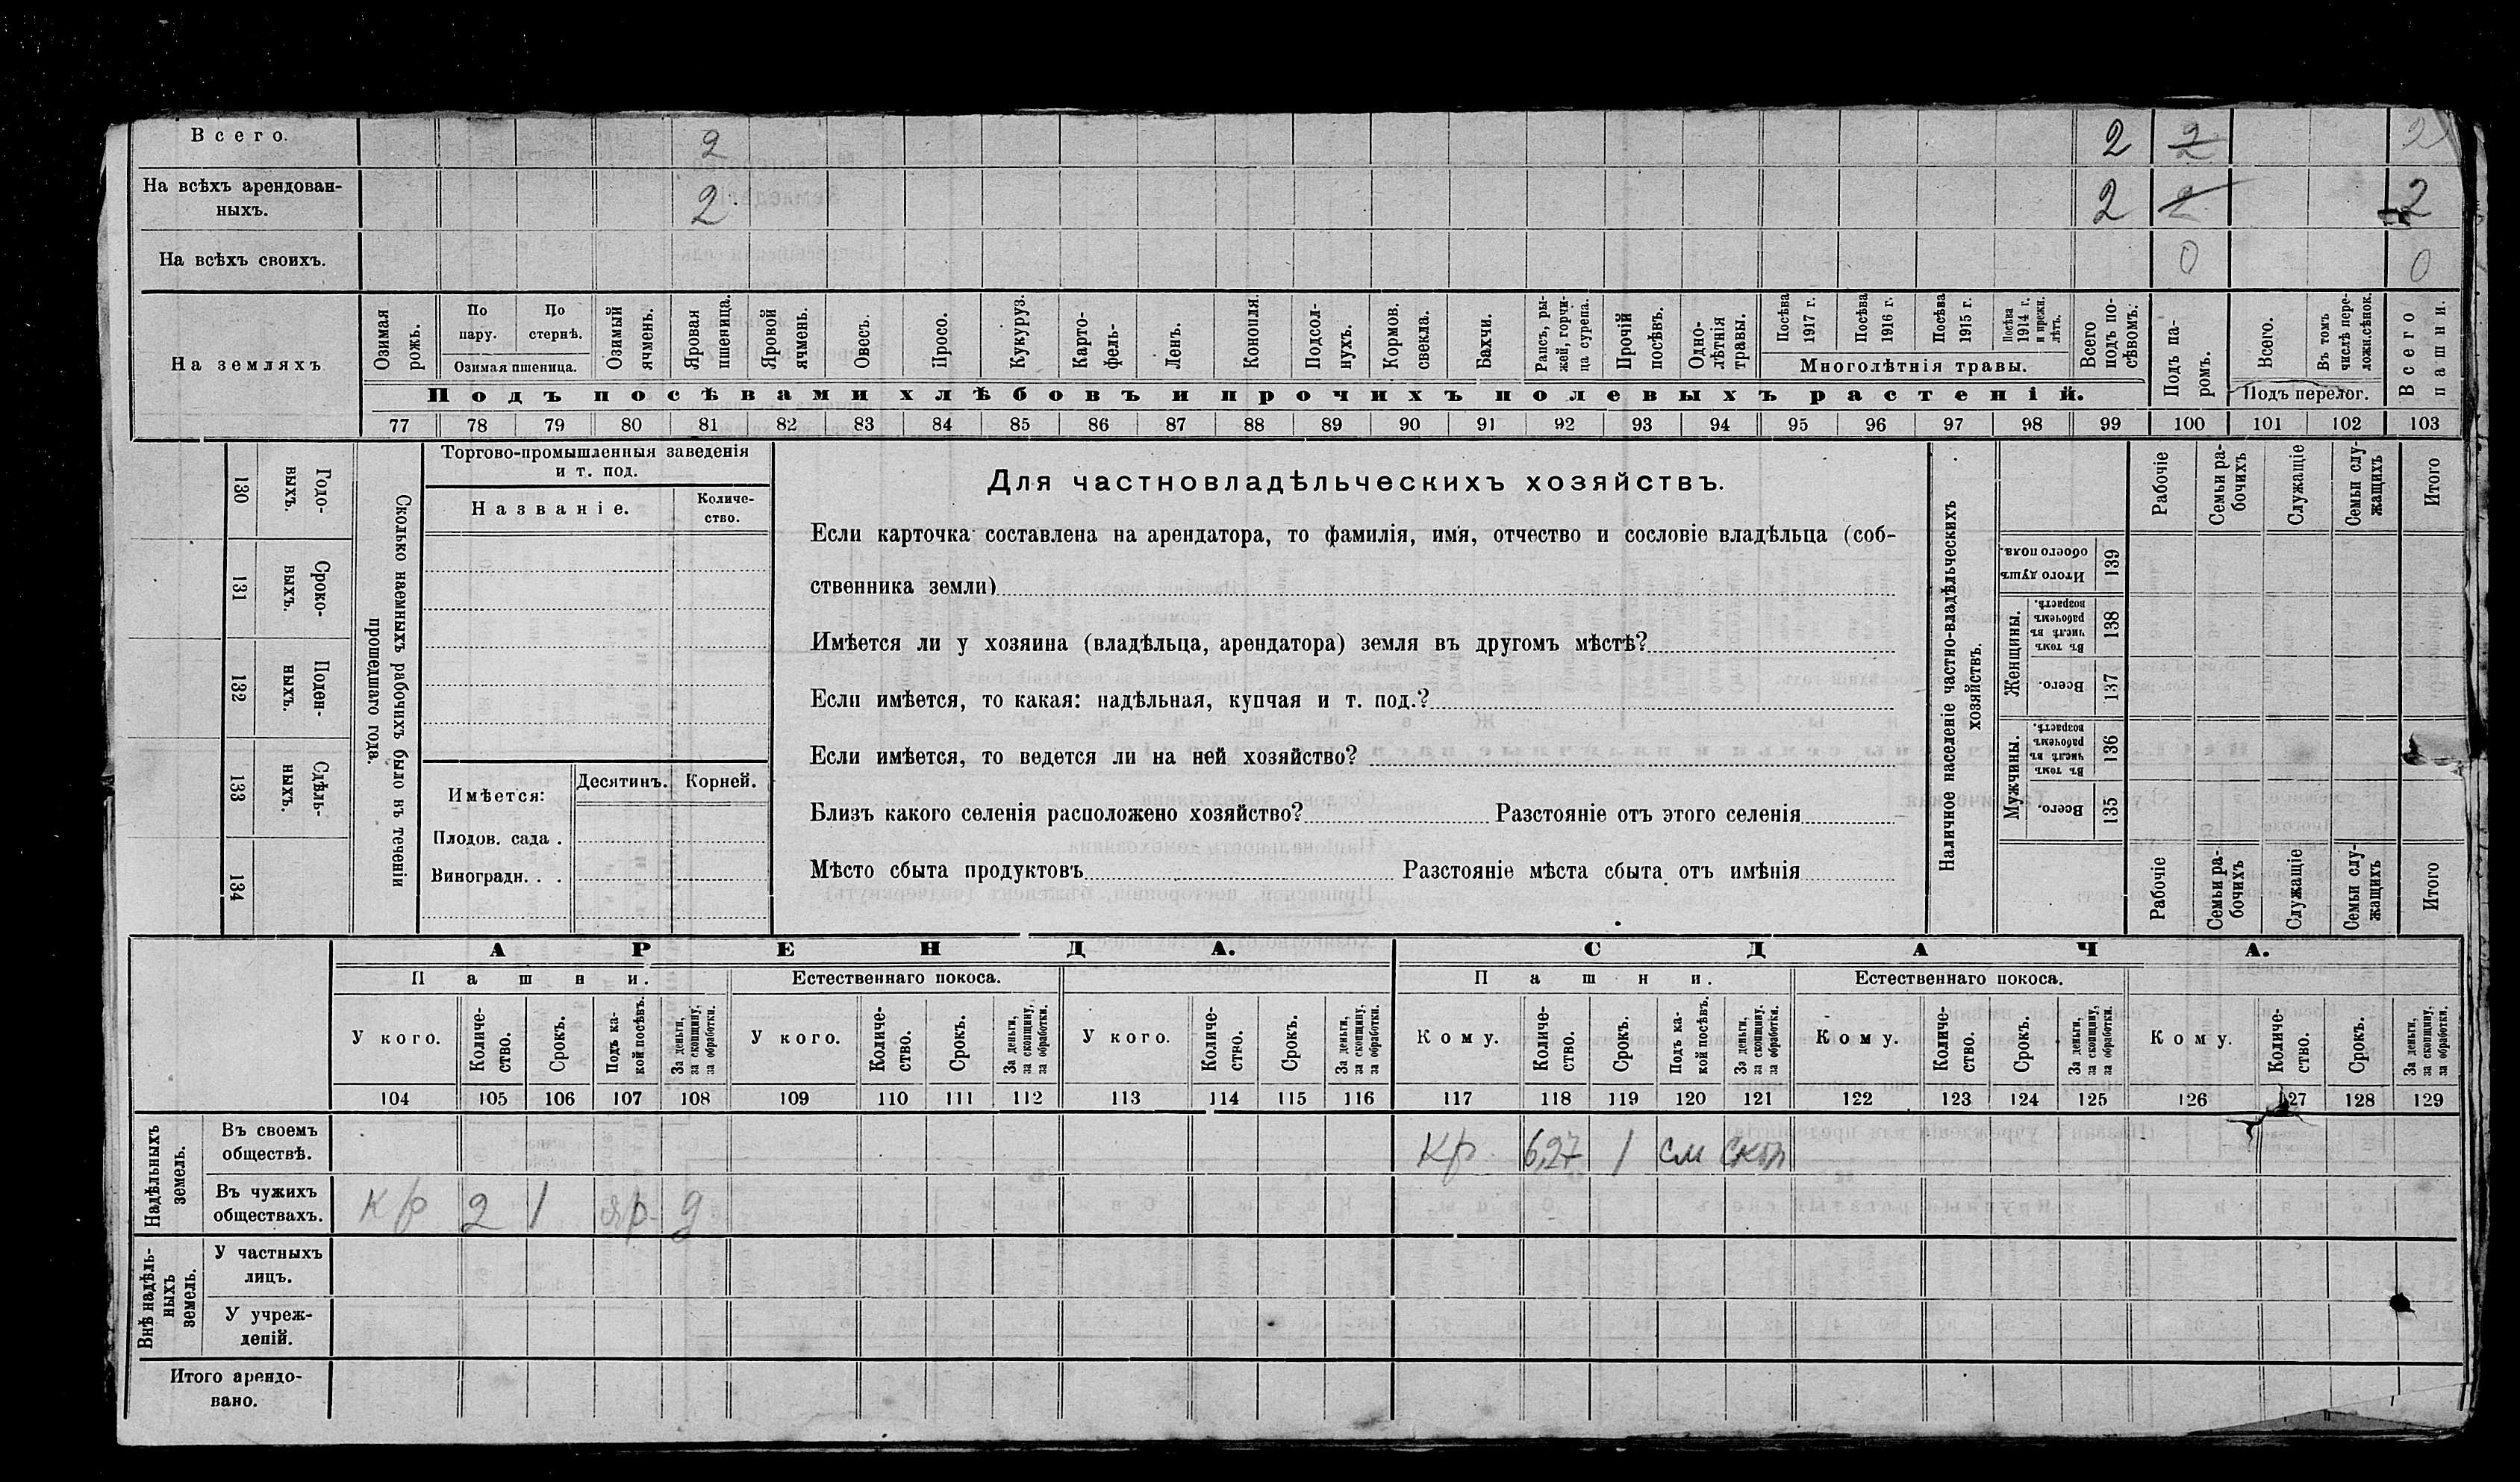 Всего. 2 2 2 2
На всѣхъ арендован-
ныхъ. 2 2 2 2
На всѣхъ своихъ. 0 0
На земляхъ
Озимая рожь.
По пару.
По стернѣ.
Озимая пшеница.
Озимый ячмень.
Яровая пшеница.
Яровой ячмень.
Овесъ.
Просо.
Кукуруз.
Карто-
фель-
Ленъ.
Конопля.
Подсол-
нухъ.
Кормов.
свекла.
Бахчи.
Рапсъ, ры-
жей, горчи-
ца сурепа.
Прочій
посѣвъ.
Одно-
лѣтнія
травы.
Посѣва
1917 г.
Посѣва
1916 г.
Посѣва
1915 г.
Посѣва
1914 г.
и прежн.
лѣтъ.
Многолѣтнія травы.
Всего
подъ по-
сѣвомъ.
Подъ па-
ромъ.
Всего.
Въ томъ
числѣ пере-
ложн.сѣнок.
Подъ перелог.
Всего
пашни.
Подъ посѣвами хлѣбовъ и прочихъ полевыхъ растеній.
77 78 79 80 81 82 83 84 85 86 87 88 89 90 91 92 93 94 95 96 97 98 99 100 101 102 103
130 Годо-
выхъ.
131 Сроко-
выхъ.
132 Поден-
ныхъ.
133 Сдѣль-
ныхъ.
134
Сколько наемныхъ рабочихъ было въ теченіи
прошедшаго года.
Торгово-промышленныя заведенія
и т. под.
Названіе.
Количе-
ство.
Имѣется: Десятинъ. Корней.
Плодов. сада .
Виноградн. . .
Для частновладѣльческихъ хозяйствъ.
Если карточка составлена на арендатора, то фамилія, имя, отчество и сословіе владѣльца (соб-
ственника земли)
Имѣется ли у хозяина (владѣльца, арендатора) земля въ другомъ мѣстѣ?
Если имѣется, то какая: надѣльная, купчая и т. под.?
Если имѣется, то ведется ли на ней хозяйство?
Близъ какого селенія расположено хозяйство? Разстояніе отъ этого селенія
Мѣсто сбыта продуктовъ Разстояніе мѣста сбыта отъ имѣнія
Наличное населеніе частно-владѣльческихъ
хозяйствъ.
Рабочіе
Семьи ра-
бочихъ
Служащіе
Семьи слу-
жащихъ
Итого
Итого душъ
обоего пола.
139
Женщины.
Въ томъ
числѣ въ
рабочемъ
возрастѣ.
138
Всего.
137
Мужчины.
Въ томъ
числѣ въ
рабочемъ
возрастѣ.
136
Всего.
135
Рабочіе
Семьи ра-
бочихъ
Служащіе
Семьи слу-
жащихъ
Итого
АРЕНДА. СДАЧА.
Пашни. Естественнаго покоса. Пашни. Естественнаго покоса.
У кого.
Количе-
ство.
Срокъ.
Подъ ка-
кой посѣвъ.
За деньги,
за скопщину,
за обработки.
У кого.
Количе-
ство.
Срокъ.
За деньги,
за скопщину,
за обработки.
У кого.
Количе-
ство.
Срокъ.
За деньги,
за скопщину,
за обработки.
Кому.
Количе-
ство.
Срокъ.
Подъ ка-
кой посѣвъ.
За деньги,
за скопщину,
за обработки.
Кому.
Количе-
ство.
Срокъ.
За деньги,
за скопщину,
за обработки.
Кому.
Количе-
ство.
Срокъ.
За деньги,
за скопщину,
за обработки.
104 105 106 107 108 109 110 111 112 113 114 115 116 117 118 119 120 121 122 123 124 125 126 127 128 129
Надѣльныхъ
земель.
Въ своемъ
обществѣ. кр 6,27 1 см
Въ чужихъ
обществахъ. кр 2 1 яр. д
Внѣ надѣль-
ныхъ
земель.
У частныхъ
лицъ.
У учреж-
деній.
Итого арендо-
вано.